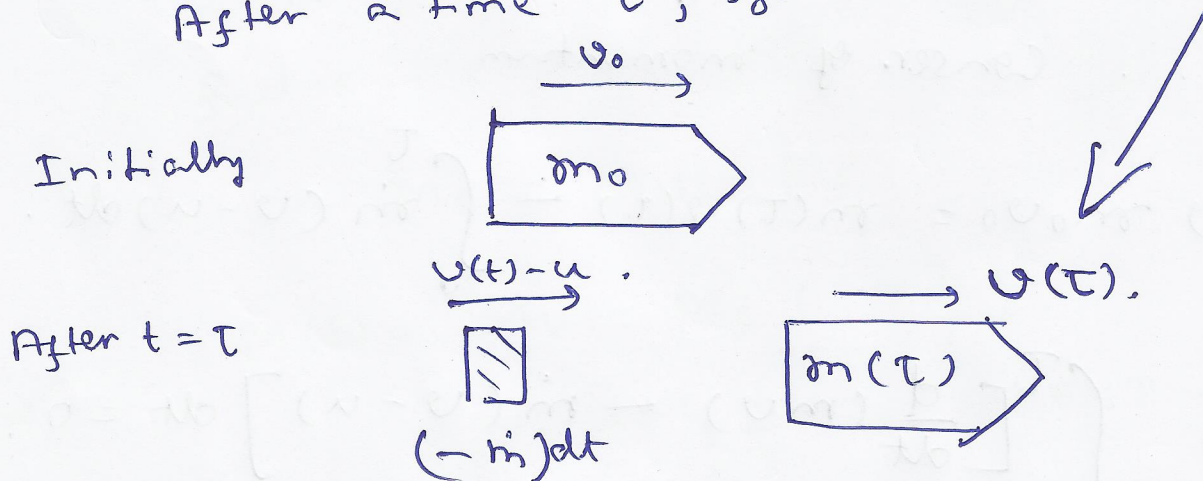 After a time τ, 
v₀
Initially
m₀
v(t)-u .
v(τ).
After t = τ
m(τ)
(-ṁ)dt